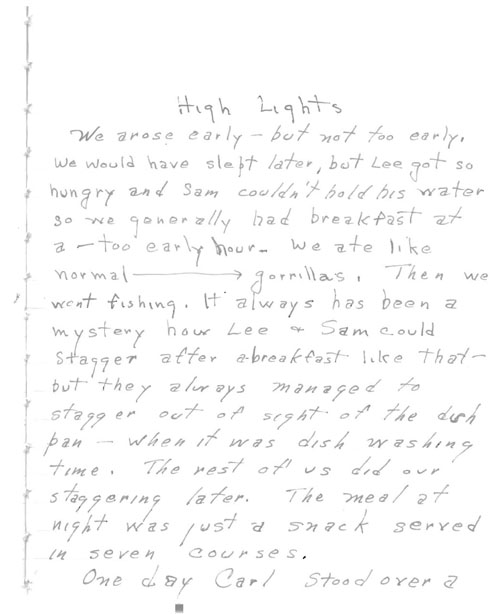 High Lights
We arose early - but not too early.
We would have slept later, but Lee got so
hungry and Sam couldn't hold his water
so we generally had breakfast at
a - too early hour - We ate like
normal → gorrillas. Then we
went fishing. It always has been a
mystery how Lee & Sam could
stagger after a breakfast like that -
but they always managed to
stagger out of sight of the dish
pan - when it was dish washing
time. The rest of us did our
staggering later. The meal at
night was just a snack served
in seven courses.
One day Carl stood over a